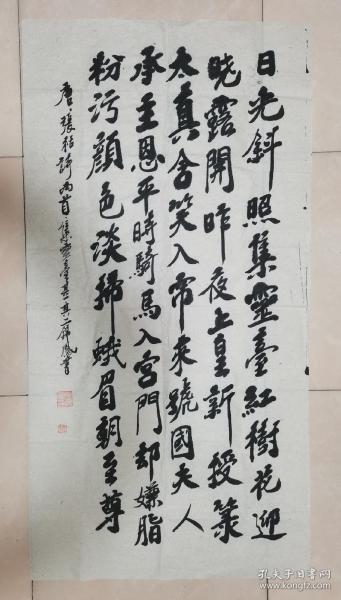 日光斜照集靈臺紅樹花迎
曉露開昨夜上皇新授箓
太真含笑入帘來號國夫人
承主恩平時騎馬入宮門却嫌脂
粉污顏色淡掃蛾眉朝至尊
唐張祜詩两首集靈臺其一其二書
孔夫子旧书网